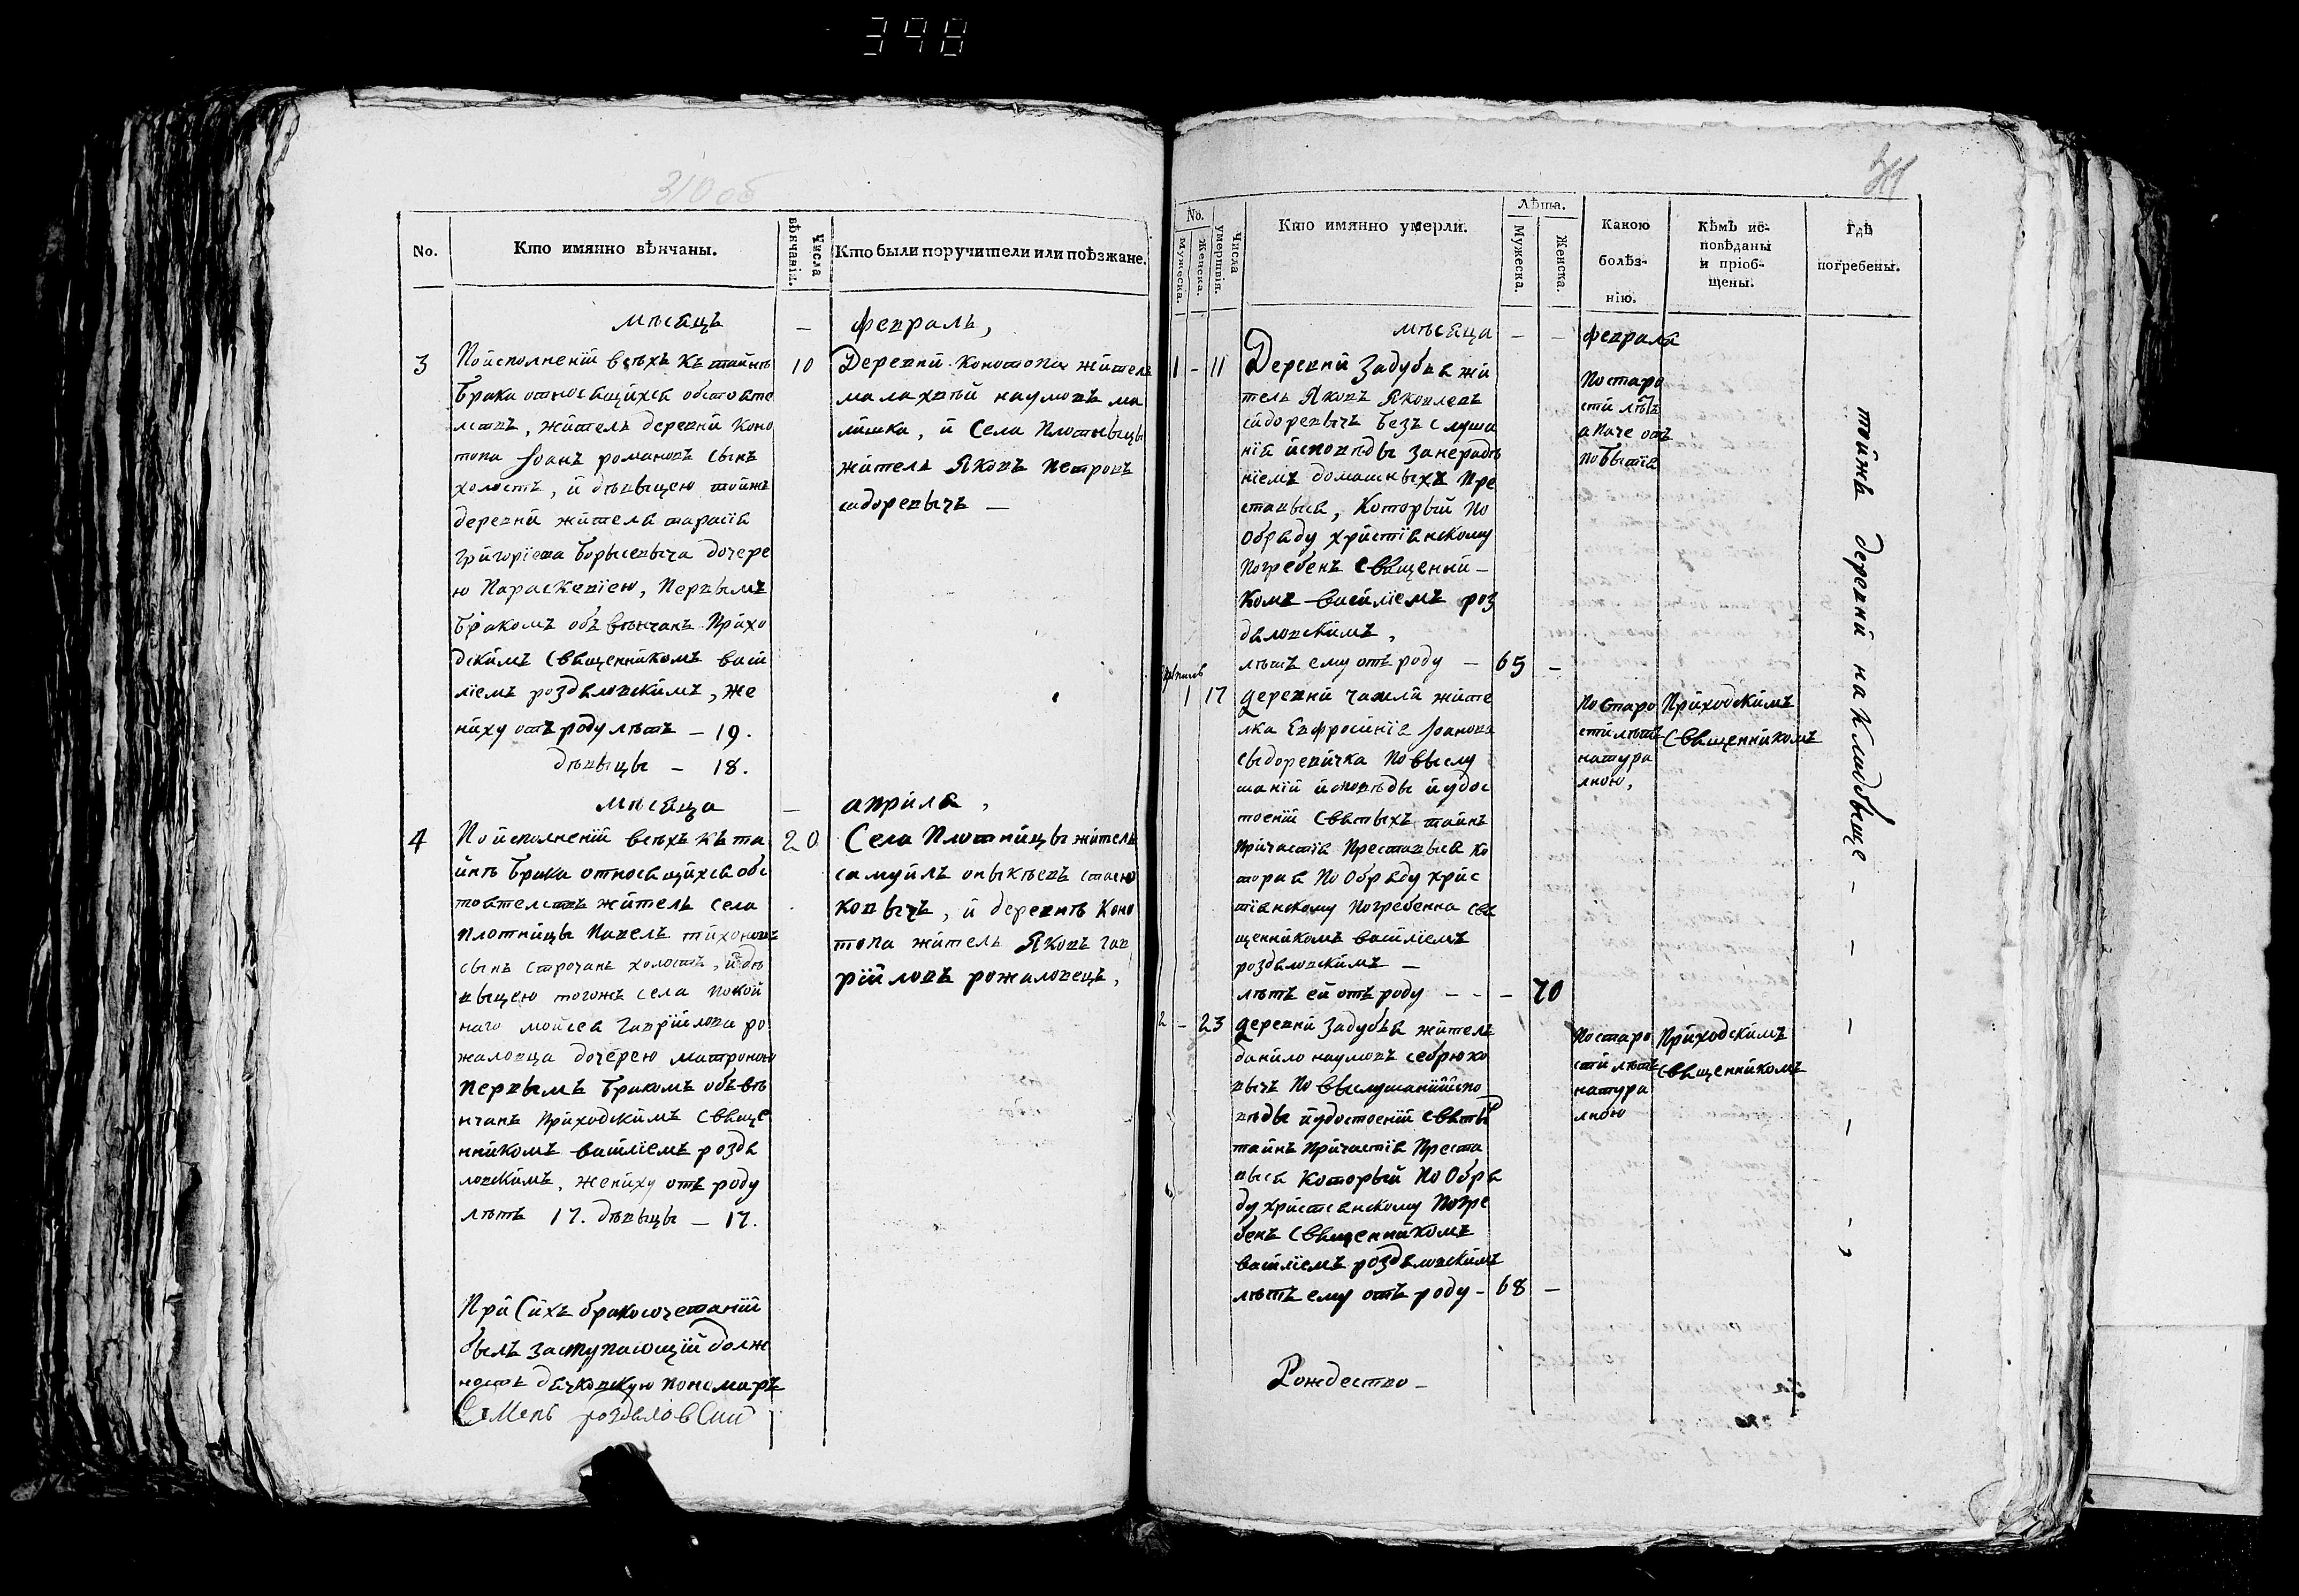 398
310 об
No.
Кто имянно вѣнчаны.
Числа вѣнчанія.
Кто были поручители или поѣзжане.
мѣсяцъ — февраль,
3
По исполненіи всѣхъ къ тайнѣ
брака относящихся обстояте
лствъ, житель деревни Коно
топа Іоанъ романовъ сынъ
холостъ, и дѣвыцею тойжъ
деревни жителя тарасія
григоріева борысевыча дочере
ю Параскевіею, Первымъ
бракомъ объ вѣнчанъ Прихо
дскимъ Священникомъ васи
ліемъ роздяловскимъ, же
ниху отъ роду лѣтъ — 19.
дѣвыцы — 18.
10
Деревни Конотопа житель
малахтѣй наумовъ ма
лишка, и Села Плотныцы
житель Яковъ Петровъ
сидоревычъ —
мѣсяца — априля,
4
По исполненіи всѣхъ къ та
йнѣ брака относящихся обс
тоятелствъ житель села
плотницы Павелъ тихоновъ
сынъ строчанъ холостъ, и дѣ
выцею тогожъ села покой
наго мойсея гавріилова ро
жаловца дочерею матроною
первымъ бракомъ объ вѣ
нчанъ Приходскимъ Свяще
нникомъ васіліемъ роздя
ловскимъ, жениху отъ роду
лѣтъ 17. дѣвыцы — 17.
20
Села Плотницы житель
самуйлъ
ковычъ, и деревнѣ Коно
топа житель Яковъ гав
ріиловъ рожаловецъ,
При Сихъ бракосочетаніи
былъ заступающій долж
ность дячковскую пономаръ
Семенъ роздяловский
No.
Мужеска.
Женска.
Числа умершвія.
Кто имянно умерли.
Лѣта.
Мужеска.
Женска.
Какою болѣз-
нію.
Кѣмъ ис-
повѣданы
и пріоб-
щены.
Гдѣ
погребены.
мѣсяца — — февраля
1 — 11
Деревни Задубья жи
тель Яковъ Яковлевъ
сидоревычъ безъ слуша
нія исповѣды за нерадѣ
ніемъ домашныхъ Пре
ставыся, Который По
обряду христіянскому
Погребенъ Священни—
комъ васіліемъ роз
дяловскимъ,
лѣтъ ему отъ роду — 65 —
По старо
сти лѣтъ
а паче отъ
1 17
деревни житe
лка Евфросинія Іоанова
сыдоревичка По выслу
шаніи исповѣды и удос
тоеніи Святыхъ тайнъ
причастія Преставыся ко
торая По Обряду хрис
тіянскому Погребенна свя
щенникомъ васіліемъ
роздяловскимъ —
лѣтъ ей отъ роду — — — 70
По Старо
сти лѣтъ
натура
лною,
Приходскимъ
Священникомъ
2 — 23
деревни Задубья житель
данило наумовъ себрюко
вычъ По выслушаніи испо
вѣды и удостоеніи святы
тайнъ Причастія Преста
выся Который По Обря
ду христіянскому Погре
бенъ Священникомъ
васіліемъ роздяловскимъ
лѣтъ ему отъ роду — 68 —
По старо
сти лѣтъ
натура
лною
Приходскимъ
Священникомъ
тойже деревни на Кладбыще — — — — —
Рождество —